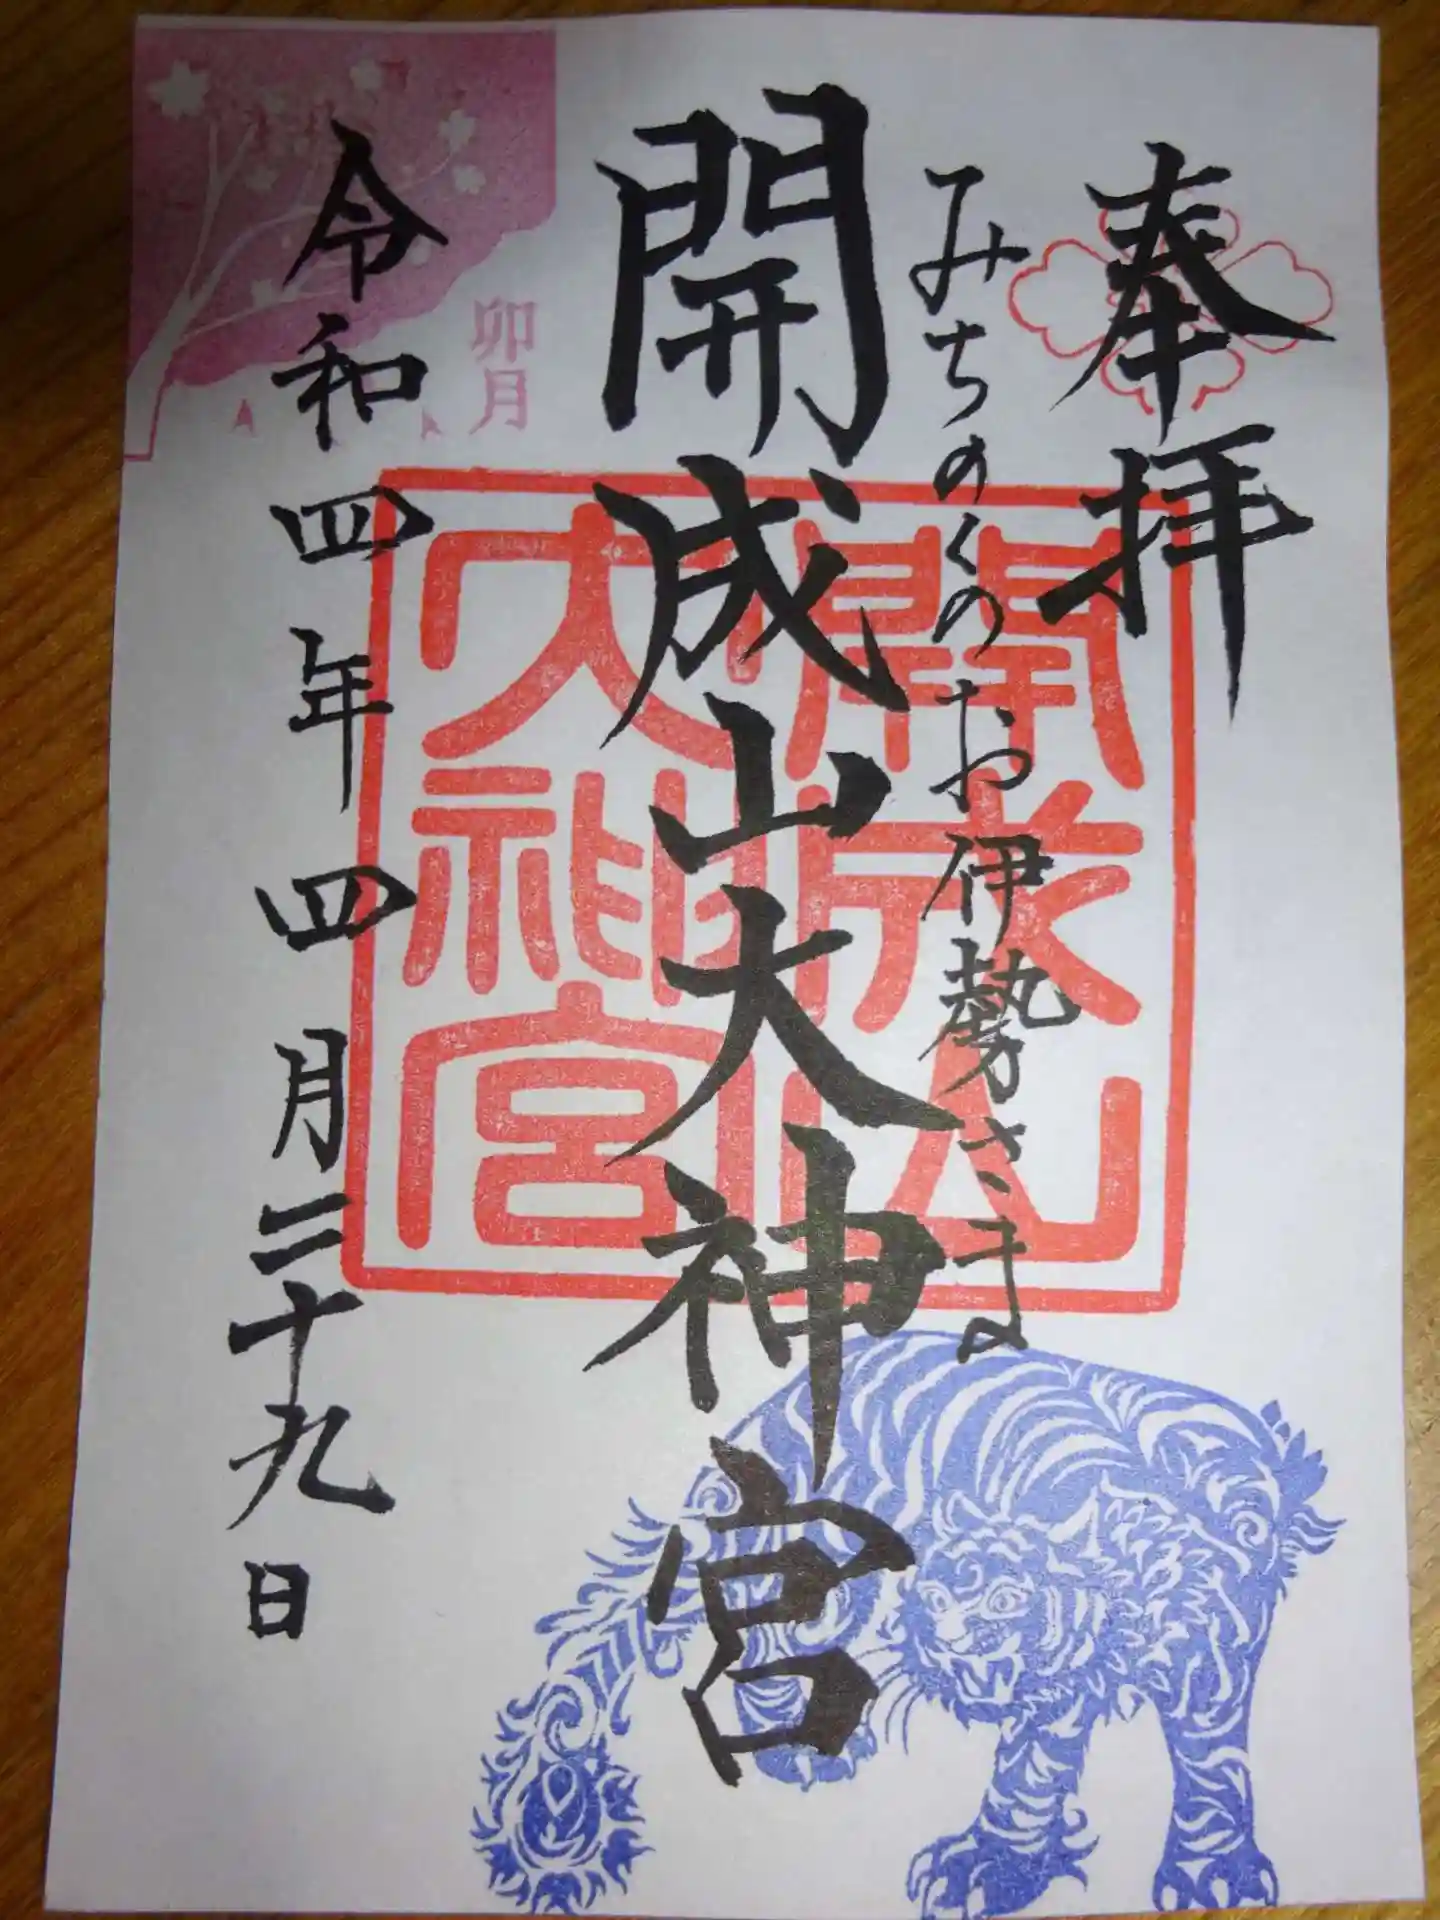 奉拝
みちのくのお伊勢さま
開成山大神宮
開成山
大神宮
卯月
令和四年四月二十九日